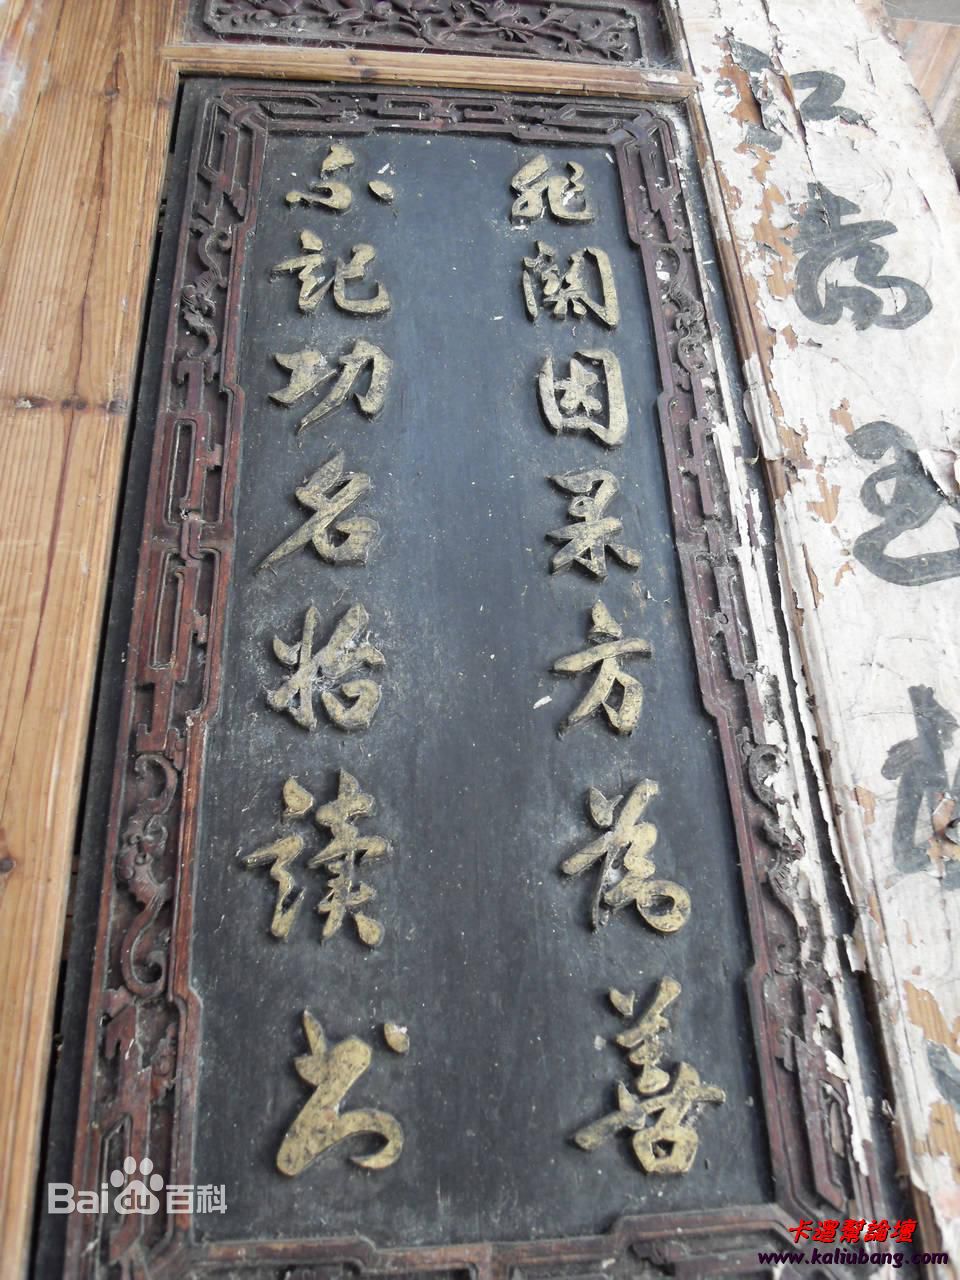 非關因果方為善
不記功名始讀書
江
玉
Bai百科
幫論壇
www.kaliubang.com